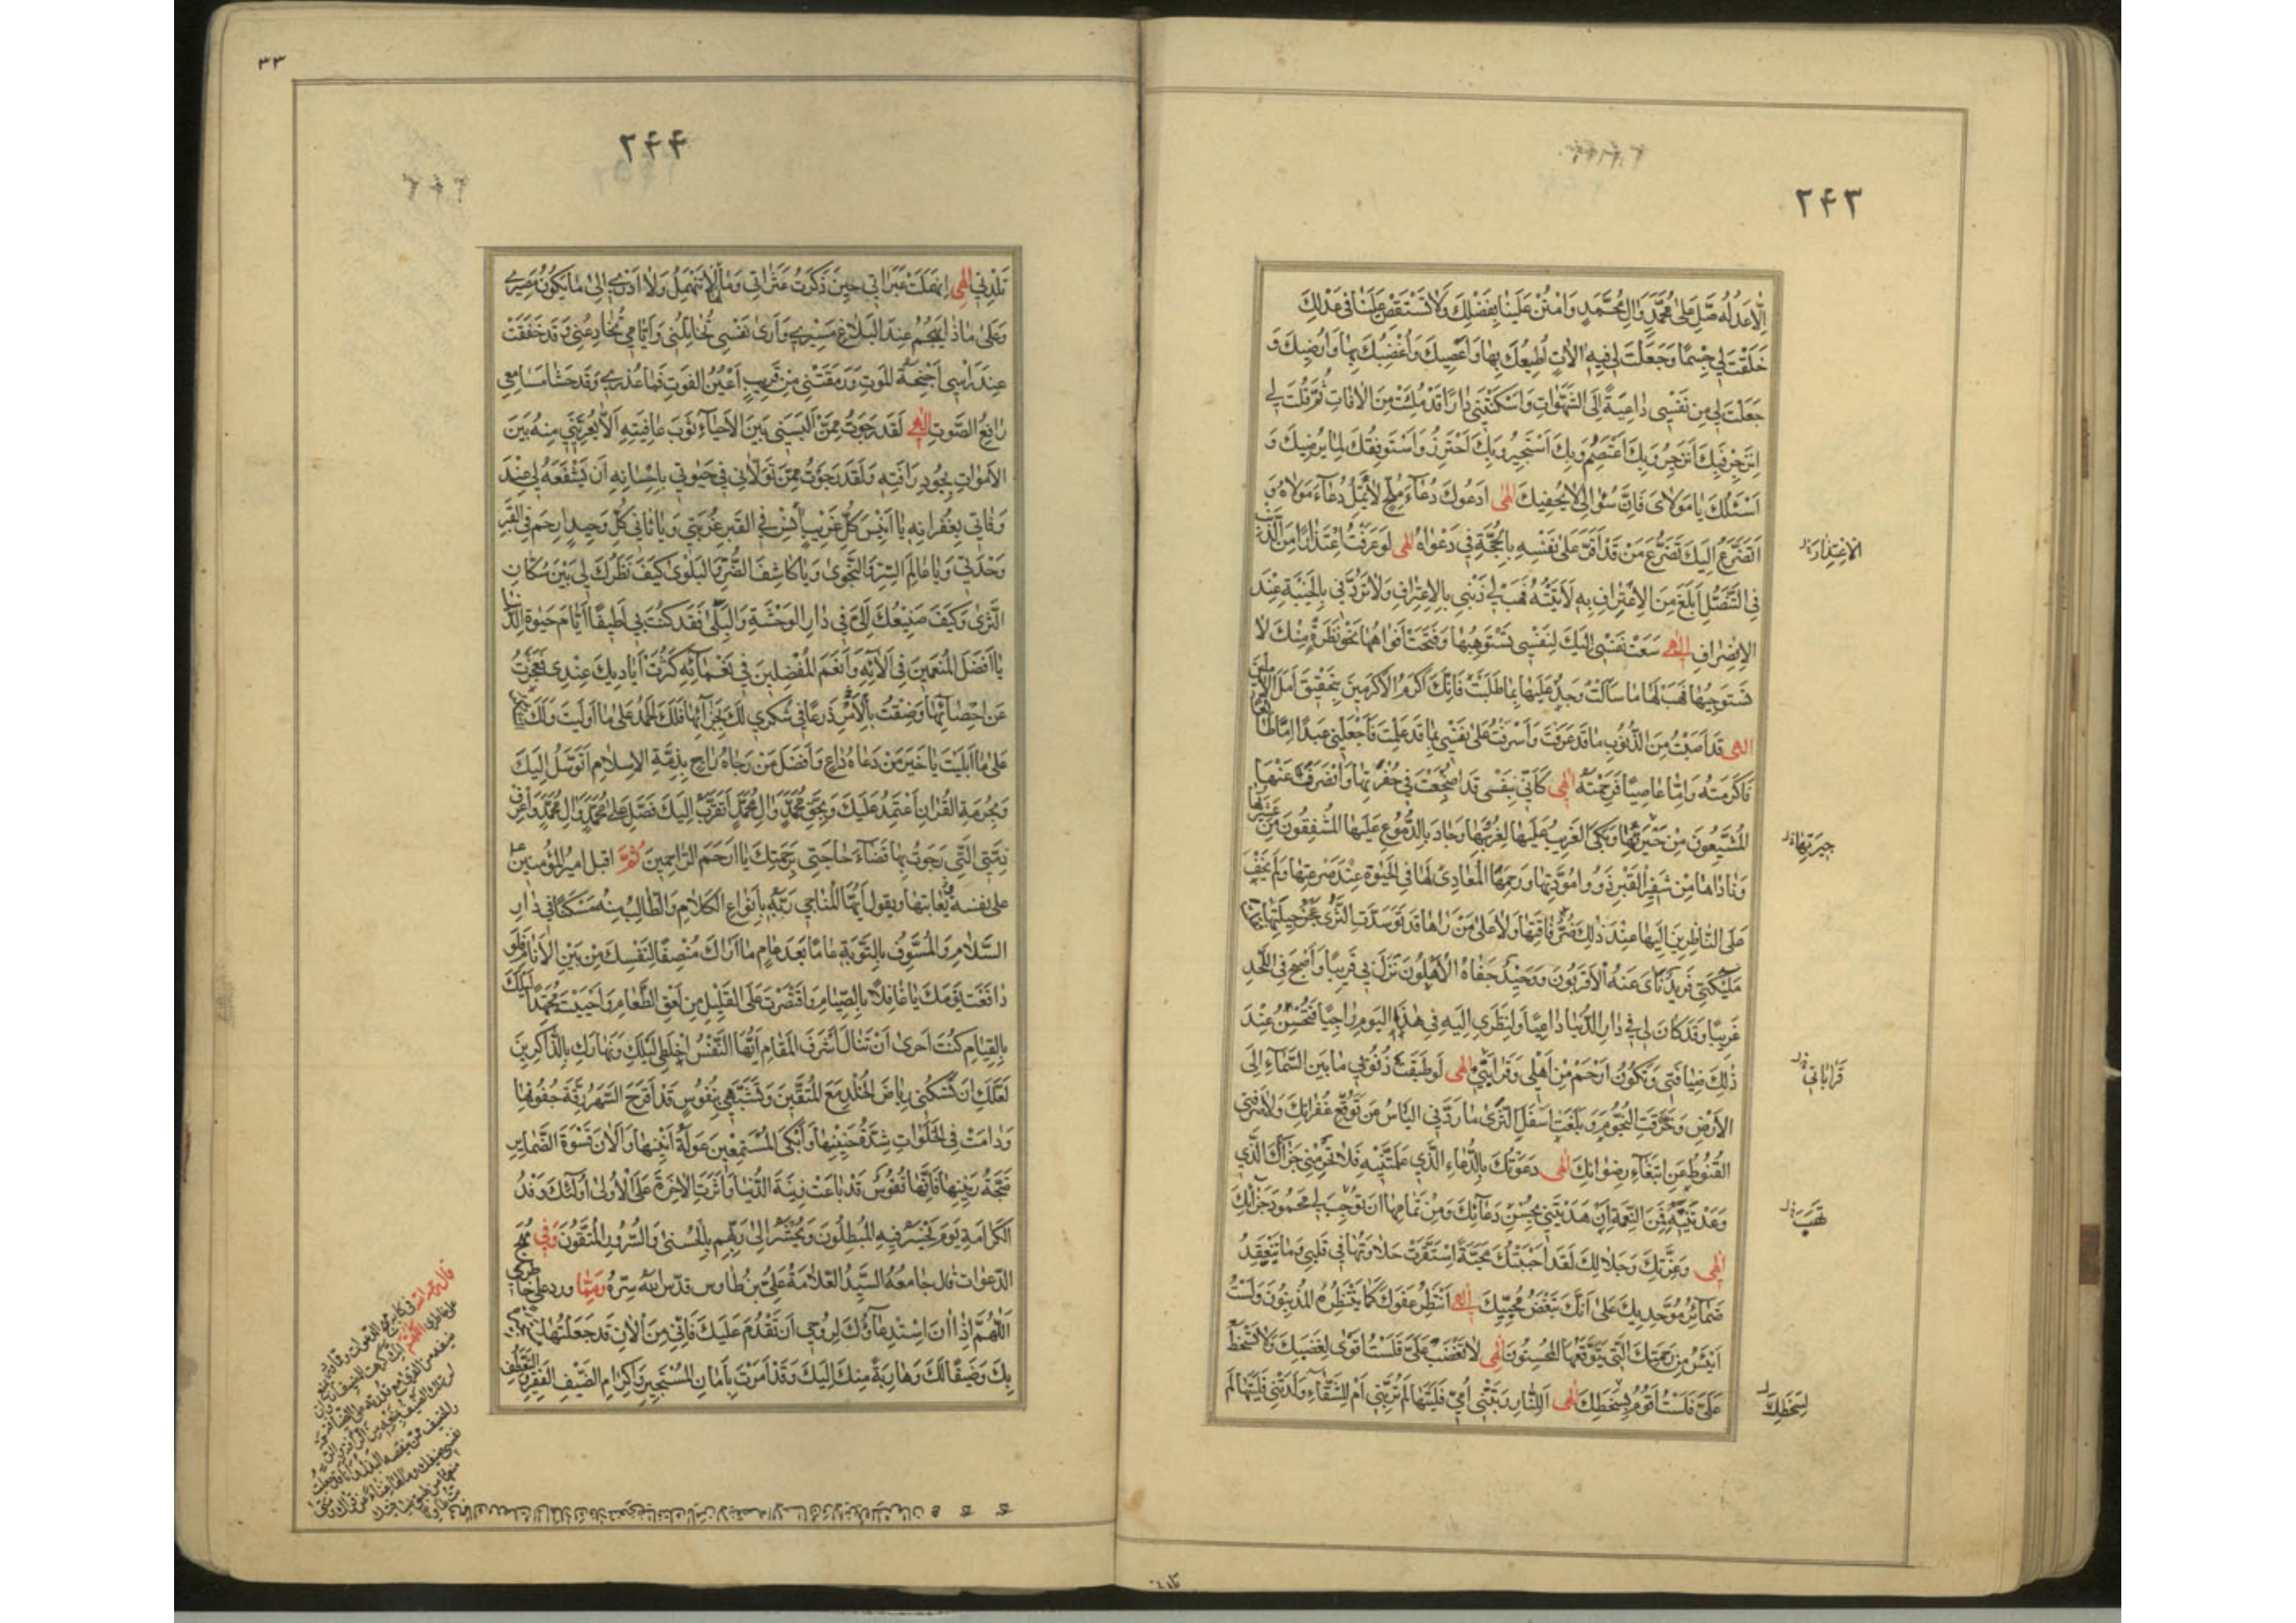 ٢٤٣
إلّا عَدلُه صَلِّ عَلى مُحَمَّدٍ وَالِ مُحَمَّدٍ وَامْنُنْ عَلَيْنَا بِفَضْلِكَ وَلا تَسْتَقْصِ عَلَيْنا في عَدْلِكَ
خَلَقْتَ لي جِسْمًا وَجَعَلْتَ لي فيهِ الاتٍ اُطيعُكَ بِها وَاَعْصيكَ وَاُغْضِبُكَ بِها وَاُرْضيكَ وَ
جَعَلْتَ لي مِنْ نَفْسي داعِيَةً اِلَى الشَّهَواتِ وَاَسْكَنْتَني دارًا قَدْ مُلِئَتْ مِنَ الافاتِ ثُمَّ قُلْتَ لي
اِنْزَجِرْ فَبِكَ اَنْزَجِرُ وَبِكَ اَعْتَصِمُ وَبِكَ اَسْتَجيرُ وَبِكَ اَحْتَرِزُ وَاَسْتَوْفِقُكَ لِما يُرْضيكَ وَ
اَسْئَلُكَ يا مَوْلايَ فَاِنَّ سُؤالي لا يُحْفيكَ الهى اَدْعُوكَ دُعاءَ مُلِحٍّ لا يَمَلُّ دُعاءَ مَوْلاهُ وَ
اَتَضَرَّعُ اِلَيْكَ تَضَرُّعَ مَنْ قَدْ اَقَرَّ عَلى نَفْسِهِ بِالحُجَّةِ في دَعْواهُ الهى لَوْ عَرَفْتُ اِعْتِذارًا مِنَ الذَّنْبِ
الاعتذار
فِي التَّنَصُّلِ اَبْلَغَ مِنَ الاِعْتِرافِ بِهِ لاَتَيْتُهُ فَهَبْ لي ذَنْبي بِالاِعْتِرافِ وَلا تَرُدَّني بِالخَيْبَةِ عِنْدَ
الاِنْصِرافِ الهى سَعَتْ نَفْسي اِلَيْكَ لِنَفْسي تَسْتَوْهِبُها وَفَتَحَتْ اَفْواهَها نَحْوَ نَظْرَةٍ مِنْكَ لا
تَسْتَوْجِبُها فَهَبْ لَها ما سَاَلَتْ وَجُدْ عَلَيْها بِما طَلَبَتْ فَاِنَّكَ اَكْرَمُ الاَكْرَمينَ بِتَحْقيقِ اَمَلِ الامِلينَ
الهى قَدْ اَصَبْتُ مِنَ الذُّنُوبِ ما قَدْ عَرَفْتَ وَاَسْرَفْتُ عَلى نَفْسي بِما قَدْ عَلِمْتَ فَاجْعَلْني عَبْدًا اِمّا طائِعًا
فَاَكْرَمْتَهُ وَاِمّا عاصِيًا فَرَحِمْتَهُ الهى كَاَنّي بِنَفْسي قَدْ اُضْجِعَتْ في حُفْرَتِها وَانْصَرَفَ عَنْها
المُشَيِّعُونَ مِنْ جيرَتِها وَبَكَى الغَريبُ عَلَيْها لِغُرْبَتِها وَجادَ بِالدُّمُوعِ عَلَيْها المُشْفِقُونَ مِنْ عَشيرَتِها
جيرتها
وَناداها مِنْ شَفيرِ القَبْرِ ذَوُو مَوَدَّتِها وَرَحِمَهَا المُعادي لَها فِي الحَيوةِ عِنْدَ صَرْعَتِها وَلَمْ يَخْفَ
عَلَى النّاظِرينَ اِلَيْها عِنْدَ ذلِكَ ضُرُّ فاقَتِها وَلا عَلى مَنْ رَاها قَدْ تَوَسَّدَتِ الثَّرى عَجْزُ حيلَتِها
مَلئِكَتي فَريدٌ نَاى عَنْهُ الاَقْرَبُونَ وَوَحيدٌ جَفاهُ الاَهْلُونَ نَزَلَ بي قَريبًا وَاَصْبَحَ فِي اللَّحْدِ
غَريبًا وَقَدْ كانَ لي في دارِ الدُّنْيا داعِيًا وَلِنَظَري اِلَيْهِ في هذَا اليَوْمِ راجِيًا فَتُحْسِنُ عِنْدَ
ذلِكَ ضِيافَتي وَتَكُونُ اَرْحَمَ مِنْ اَهْلي وَقَرابَتي الهى لَوْ طَبَّقَتْ ذُنُوبي ما بَيْنَ السَّماءِ اِلَى
قراباتي
الاَرْضِ وَخَرَقَتِ النُّجُومَ وَبَلَغَتْ اَسْفَلَ الثَّرى ما رَدَّنِي اليَاْسُ مِنْ تَوَقُّعِ غُفْرانِكَ وَلا صَرَفَنِي
القُنُوطُ عَنِ ابْتِغاءِ رِضْوانِكَ الهى دَعَوْتُكَ بِالدُّعاءِ الَّذي عَلَّمْتَنيهِ فَلا تَحْرِمْني جَزاءَكَ الَّذي
وَعَدْتَنيهِ فَمِنَ النِّعْمَةِ اَنْ هَدَيْتَني بِحُسْنِ دُعائِكَ وَمِنْ تَمامِها اَنْ تُوجِبَ لي مَحْمُودَ جَزائِكَ
الهى وَعِزَّتِكَ وَجَلالِكَ لَقَدْ اَحْبَبْتُكَ مَحَبَّةً اِسْتَقَرَّتْ حَلاوَتُها في قَلْبي وَما تَنْعَقِدُ
ضَمائِرُ مُوَحِّديكَ عَلى اَنَّكَ تُبْغِضُ مُحِبّيكَ الهى اَنْتَظِرُ عَفْوَكَ كَما يَنْتَظِرُهُ المُذْنِبُونَ وَلَسْتُ
اَيْئَسُ مِنْ رَحْمَتِكَ الَّتي يَتَوَقَّعُهَا المُحْسِنُونَ الهى لا تَغْضَبْ عَلَيَّ فَلَسْتُ اَقْوى لِغَضَبِكَ وَلا تَسْخَطْ
عَلَيَّ فَلَسْتُ اَقُومُ بِسَخَطِكَ الهى اَلِلنّارِ رَبَّتْني اُمّي فَلَيْتَها لَمْ تُرَبِّني اَمْ لِلشَّقاءِ وَلَدَتْني فَلَيْتَها لَمْ
لسخطك
٣٣
٢٤٤
تَلِدْني الهى اِنْهَمَلَتْ عَبَراتي حينَ ذَكَرْتُ عَثَراتي وَما لَها لا تَنْهَمِلُ وَلا اَدْري اِلى ما يَكُونُ مَصيري
وَعَلى ماذا يَهْجُمُ عِنْدَ البَلاغِ مَسيري وَاَرى نَفْسي تُخاتِلُني وَاَيّامي تُخادِعُني وَقَدْ خَفَقَتْ
عِنْدَ رَاْسي اَجْنِحَةُ المَوْتِ وَرَمَقَتْني مِنْ قَريبٍ اَعْيُنُ الفَوْتِ فَما عُذْري وَقَدْ حَشا مَسامِعي
رافِعُ الصَّوْتِ الهى لَقَدْ رَجَوْتُ مِمَّنْ اَلْبَسَني بَيْنَ الاَحْياءِ ثَوْبَ عافِيَتِهِ اَلّا يُعْرِيَني مِنْهُ بَيْنَ
الاَمْواتِ بِجُودِ رَاْفَتِهِ وَلَقَدْ رَجَوْتُ مِمَّنْ تَوَلّاني في حَيوتي بِاِحْسانِهِ اَنْ يَشْفَعَهُ لي عِنْدَ
وَفاتي بِغُفْرانِهِ يا اَنيسَ كُلِّ غَريبٍ انِسْ فِي القَبْرِ غُرْبَتي وَيا ثانِيَ كُلِّ وَحيدٍ اِرْحَمْ فِي القَبْرِ
وَحْدَتي وَيا عالِمَ السِّرِّ وَالنَّجْوى وَيا كاشِفَ الضُّرِّ وَالبَلْوى كَيْفَ نَظَرُكَ لي بَيْنَ سُكّانِ
الثَّرى وَكَيْفَ صَنيعُكَ اِلَيَّ في دارِ الوَحْشَةِ وَالبِلى فَقَدْ كُنْتَ بي لَطيفًا اَيّامَ حَيوةِ الدُّنْيا
يا اَفْضَلَ المُنْعِمينَ في الائِهِ وَاَنْعَمَ المُفْضِلينَ في نَعْمائِهِ كَثُرَتْ اَياديكَ عِنْدي فَعَجَزْتُ
عَنْ اِحْصائِها وَضِقْتُ بِالاَمْرِ ذَرْعًا في شُكْري لَكَ بِجَزائِها فَلَكَ الحَمْدُ عَلى ما اَوْلَيْتَ وَلَكَ الشُّكْرُ
عَلى ما اَبْلَيْتَ يا خَيْرَ مَنْ دَعاهُ داعٍ وَاَفْضَلَ مَنْ رَجاهُ راجٍ بِذِمَّةِ الاِسْلامِ اَتَوَسَّلُ اِلَيْكَ
وَبِحُرْمَةِ القُرْانِ اَعْتَمِدُ عَلَيْكَ وَبِحَقِّ مُحَمَّدٍ وَالِ مُحَمَّدٍ اَتَقَرَّبُ اِلَيْكَ فَصَلِّ عَلى مُحَمَّدٍ وَالِ مُحَمَّدٍ وَاعْرِفْ
ذِمَّتِيَ الَّتي رَجَوْتُ بِها قَضاءَ حاجَتي بِرَحْمَتِكَ يا اَرْحَمَ الرّاحِمينَ ثُمَّ اقبل امير المؤمنين
على نفسه يعاتبها ويقول اَيُّهَا المُناجي رَبَّهُ بِاَنْواعِ الكَلامِ وَالطّالِبُ مِنْهُ مَسْكَنًا في دارِ
السَّلامِ وَالمُسَوِّفُ بِالتَّوْبَةِ عامًا بَعْدَ عامٍ ما اَراكَ مُنْصِفًا لِنَفْسِكَ مِنْ بَيْنِ الاَنامِ فَلَوْ
دافَعْتَ نَوْمَكَ يا غافِلًا بِالصِّيامِ وَاقْتَصَرْتَ عَلَى القَليلِ مِنْ لَعْقِ الطَّعامِ وَاَحْيَيْتَ مُجْتَهِدًا لَيْلَكَ
بِالقِيامِ كُنْتَ اَحْرى اَنْ تَنالَ اَشْرَفَ المَقامِ اَيَّتُهَا النَّفْسُ اخْلِطي لَيْلَكِ وَنَهارَكِ بِالذّاكِرينَ
لَعَلَّكِ اَنْ تَسْكُني رِياضَ الخُلْدِ مَعَ المُتَّقينَ وَتَشَبَّهي بِنُفُوسٍ قَدْ اَقْرَحَ السَّهَرُ رِقَّةَ جُفُونِها
وَدامَتْ فِي الخَلَواتِ شِدَّةُ حَنينِها وَاَبْكَى المُسْتَمِعينَ عَوْلَةُ اَنينِها وَاَلانَ قَسْوَةَ الضَّمائِرِ
ضَجَّةُ رَنينِها فَاِنَّها نُفُوسٌ قَدْ باعَتْ زينَةَ الدُّنْيا وَاثَرَتِ الاخِرَةَ عَلَى الاُولى اُولئِكَ وَفْدُ
الكَرامَةِ يَوْمَ يَخْسَرُ فيهِ المُبْطِلُونَ وَيُحْشَرُ اِلى رَبِّهِمْ بِالحُسْنى وَالسُّرُورِ المُتَّقُونَ وَفي مُهَجِ
الدَّعَوات قال جامعه السيّد العلّامة عليّ بن طاوس قدّس الله سرّه ومِمّا ورد على خاطري
اَللّهُمَّ اِذا انَ اسْتِدْعاؤُكَ لِرُوحي اَنْ تَقْدُمَ عَلَيْكَ فَاِنّي مِنَ الانِ قَدْ جَعَلْتُها
بِكَ وَضَيْفًا لَكَ وَهارِبَةً مِنْكَ اِلَيْكَ وَقَدْ اَمَرْتَ بِاَمانِ المُسْتَجيرِ وَاِكْرامِ الضَّيْفِ الفَقيرِ وَالتَّعَطُّفِ